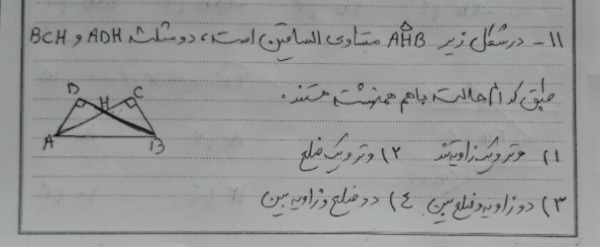 ۱۱- در شکل زیر AHB متساوی الساقین است، دو مثلث ADH و BCH
طبق کدام حالت باهم همنهشت هستند.
D
H
C
A
B
۱) وتر و یک زاویه تند ۲) وتر و یک ضلع
۳) دو زاویه و ضلع بین ۴) دو ضلع و زاویه بین